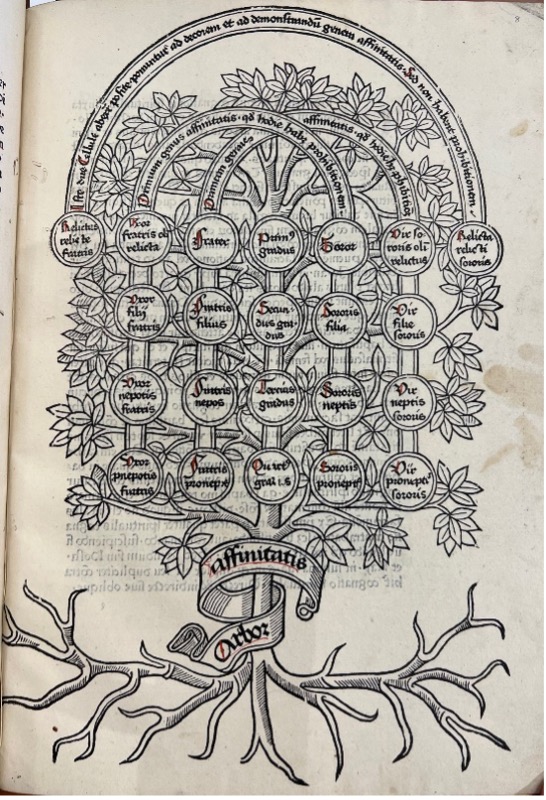 8
Iste due Cellule absq; posite ponuntur ad decorem et ad demonstrandū genera affinitatis. Sed non habent prohibitionem.
Primum genus affinitatis. qd hodie habet prohibitionem
affinitatis. qd hodie hꝫ phibitionē
Relictus
relicte
fratris
Uxor
fratris oli
relicta
Frater
Primꝰ
gradus
Soror
Vir so-
roris oli
relictus
Relicta
relicti
sororis
Uxor
filij
fratris
Fratris
filius
Secun-
dus gra-
dus
Sororis
filia
Vir
filie
sororis
Uxor
nepotis
fratris
Fratris
nepos
Tercius
gradus
Sororis
neptis
Vir
neptis
sororis
Uxor
pnepotis
fratris
Fratris
pronepos
Quartꝰ
Sororis
proneptis
Vir
proneptis
sororis
affinitatis
Arbor